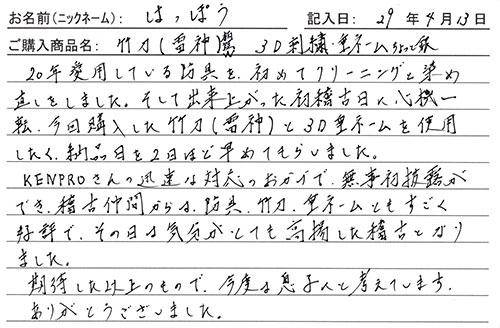 お名前(ニックネーム): はっぽう 記入日: 29年4月13日
ご購入商品名: 竹刀(雷神) 3D刺繍・垂ネーム
20年愛用している防具を、初めてクリーニングと染め
直しをしました。そして出来上がった初稽古日に心機一
転、今回購入した竹刀(雷神)と3D垂ネームを使用
したく、納品日を2日ほど早めてもらいました。
KENPROさんの迅速な対応のおかげで、無事初披露が
でき、稽古仲間からは、防具、竹刀、垂ネームともすごく
好評で、その日は気分がとても高揚した稽古となり
ました。
期待した以上のもので、今度は息子んと考えています。
ありがとうございました。